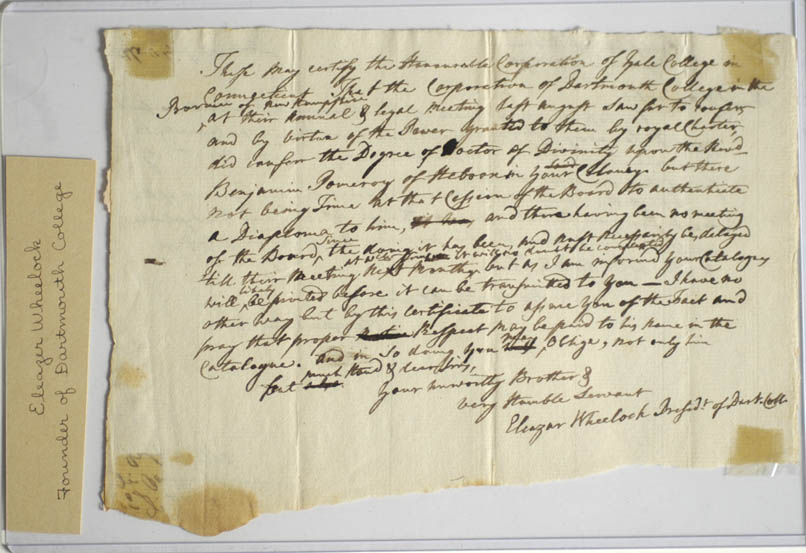 These may certify the Honourable Corporation of Yale College in
Connecticut That the Corporation of Dartmouth College in the
Province of New Hampshire
at their Annual & legal Meeting last August saw fit to
and by virtue of the Power granted to them by royal Charter
did confer the Degree of Doctor of Divinity upon the Revd
Benjamin Pomeroy of Hebron in your Colony but there
not being Time at that Session of the Board to authenticate
a Diploma to him, and there having been no meeting
of the Board since the doing it has been, and must necessarily be, delayed
at which time it will no doubt be compleated
till their Meeting next Month, but as I am informed your Catalogue
will likely be printed before it can be transmitted to you — I have no
other way but by this Certificate to assure you of the Fact and
pray that proper Respect may be paid to his name in the
Catalogue. and in so doing you may oblige, not only him
but much Hond & dear Sirs,
your unworthy Brother &
very Humble Servant
Eleazar Wheelock Presidt. of Dart. Coll.
Eleazer Wheelock
Founder of Dartmouth College